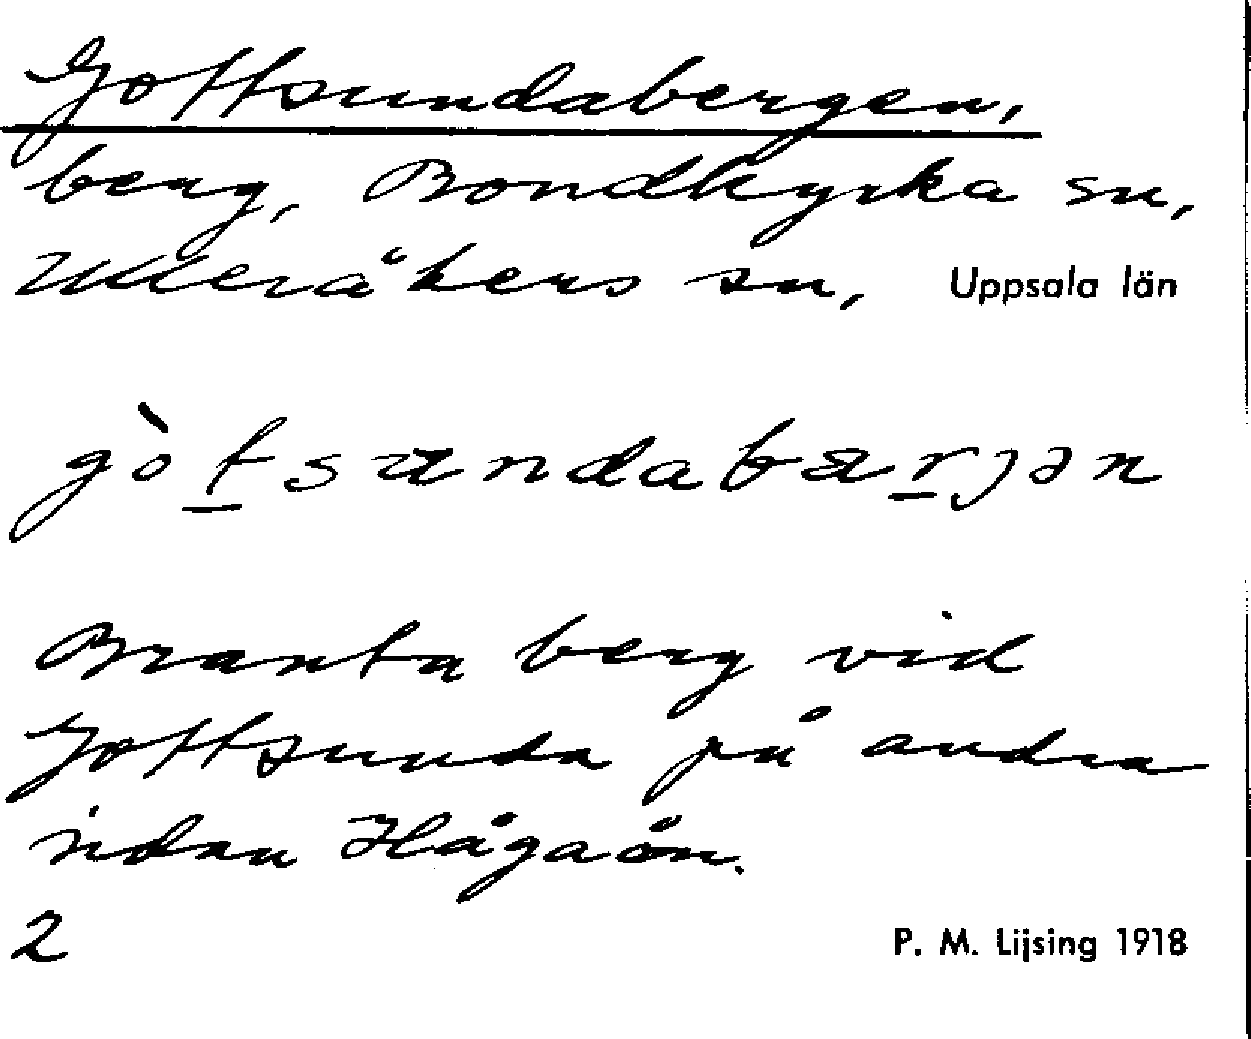 Gottsundabergen,
berg, Bondkyrka sn,
Ulleråkers sn, Uppsala län
gòtsundabærjən
Branta berg vid
Gottsunda på andra
sidan Hågaån.
2
P. M. Lijsing 1918